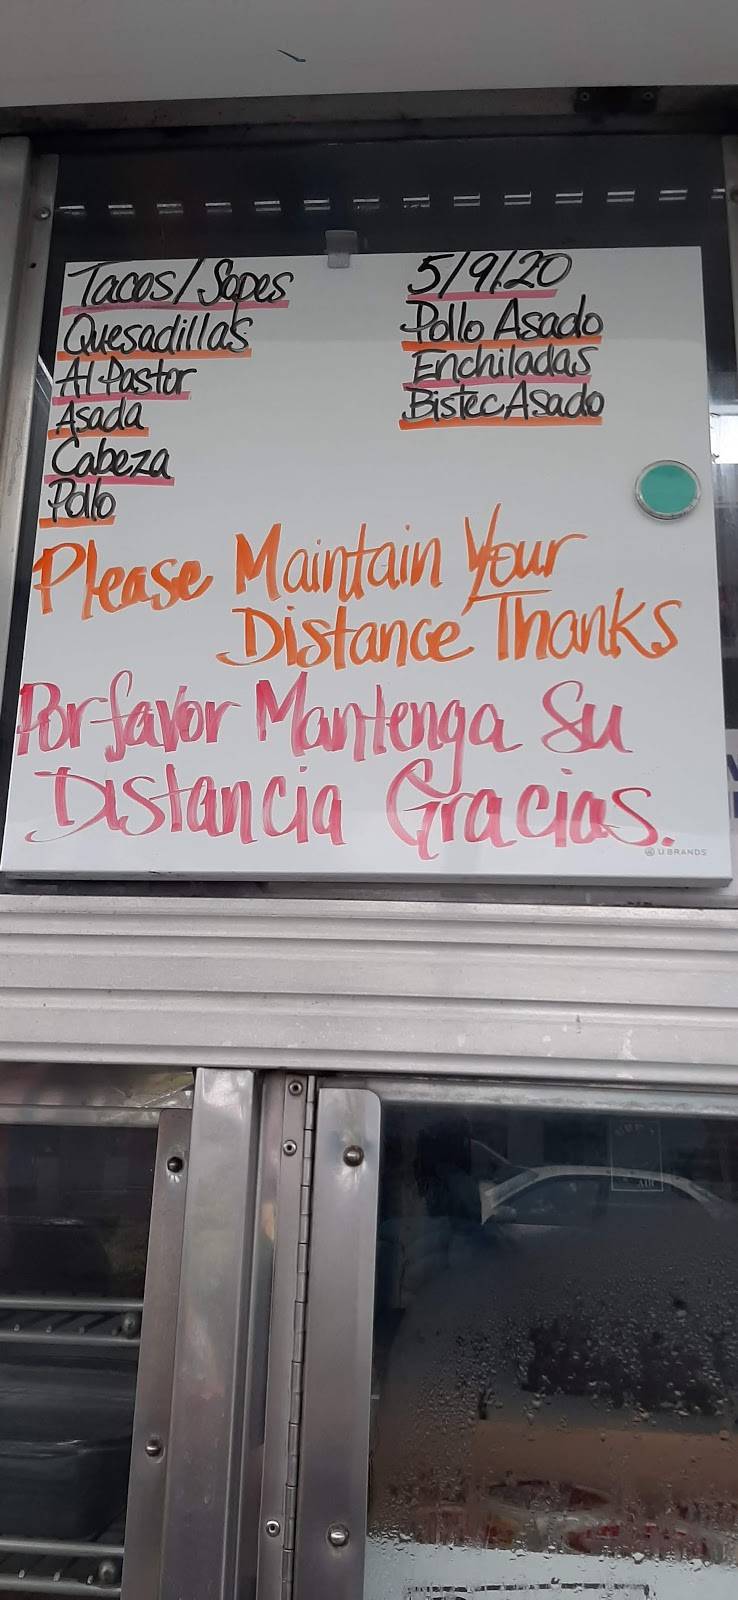 Tacos/Sopes
Quesadillas
Al Pastor
Asada
Cabeza
Pollo
5/9/20
Pollo Asado
Enchiladas
Bistec Asado
Please Maintain Your
Distance Thanks
Por favor Mantenga Su
Distancia Gracias.
U BRANDS